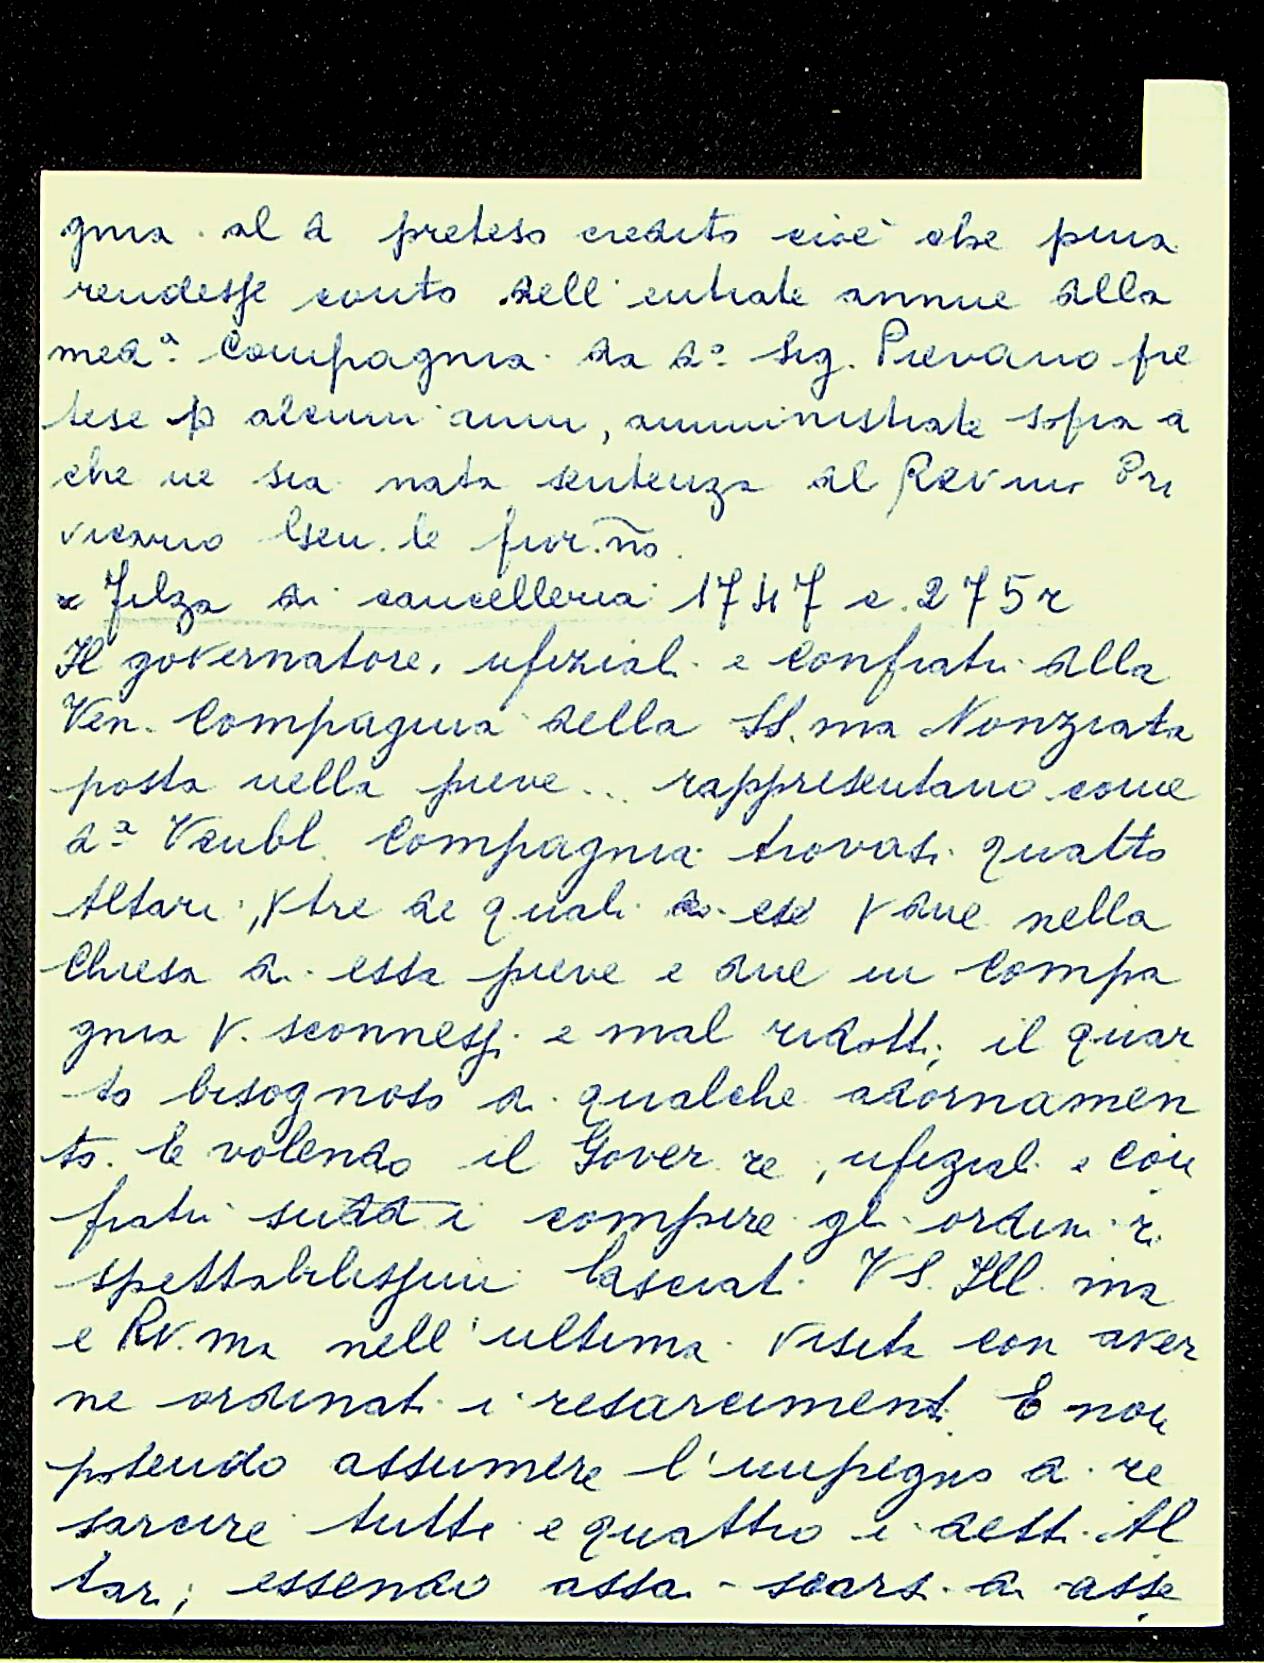 gnia al d preteso credito cioè che pria
rendesse conto dell'entrate annue della
meda. Compagnia da do sig. Pievano pre
tese p alcuni anni, amministrate sopra di
che ne sia nata sentenza al Rev.mo Pri
vicario Gen. le fior.no.
x Filza di cancelleria 1747 c. 275r
Il governatore, ufiziali e confrati della
Ven. Compagnia della SS.ma Nonziata
posta nella pieve... rappresentano come
da Venbl. Compagnia trovasi quattro
Altari, tre de quali due nella
Chiesa di essa pieve e due in Compa
gnia sconnessi e mal ridotti; il quar
to bisognoso di qualche adornamen
to. E volendo il Gover.re, ufiziali e con
frati sudd.i compire gli ordini ri
spettabilissimi lasciati VS. Ill.ma
e RV.ma nell'ultima visita con aver
ne ordinati i resarcimenti E non
potendo assumere l'impegno di re
sarcire tutti e quattro i detti Al
tari; essendo assai scarsi di asse